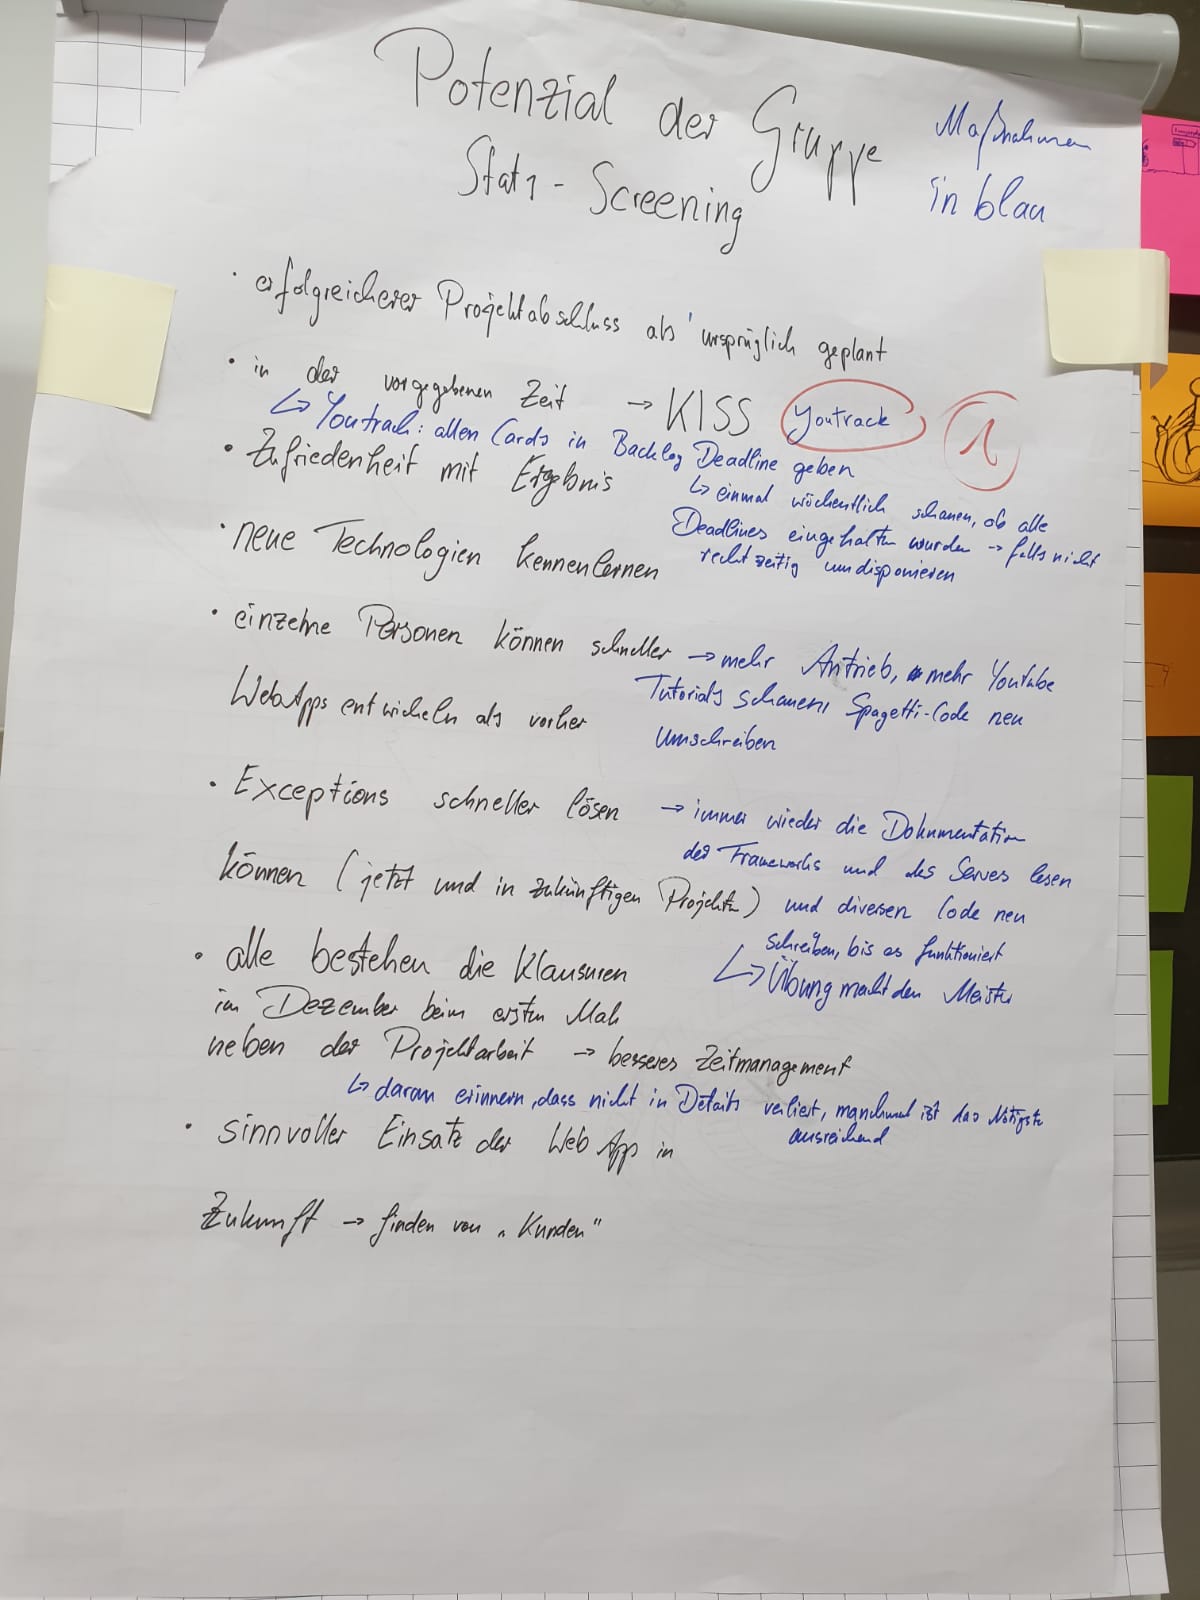 Potenzial der Gruppe
Stat1 - Screening
Maßnahmen
in blau
• erfolgreicherer Projektabschluss als ursprüglich geplant
• in der vorgegebenen Zeit → KISS Youtrack 1
↳ Youtrack: allen Cards in Backlog Deadline geben
↳ einmal wöchentlich schauen, ob alle
Deadlines eingehalten wurden → falls nicht
rechtzeitig umdisponieren
• Zufriedenheit mit Ergebnis
• neue Technologien kennenlernen
• einzelne Personen können schneller
WebApps entwickeln als vorher
→ mehr Antrieb, mehr Youtube
Tutorials schauen, Spagetti-Code neu
umschreiben
• Exceptions schneller lösen
können (jetzt und in zukünftigen Projekten)
→ immer wieder die Dokumentation
der Frameworks und des Servers lesen
und diversen Code neu
schreiben, bis es funktioniert
↳ Übung macht den Meister
• alle bestehen die Klausuren
im Dezember beim ersten Mal
neben der Projektarbeit → besseres Zeitmanagement
↳ daran erinnern, dass nicht in Details verliert, manchmal ist das Nötigste
ausreichend
• sinnvoller Einsatz der Web App in
Zukunft → finden von „Kunden"